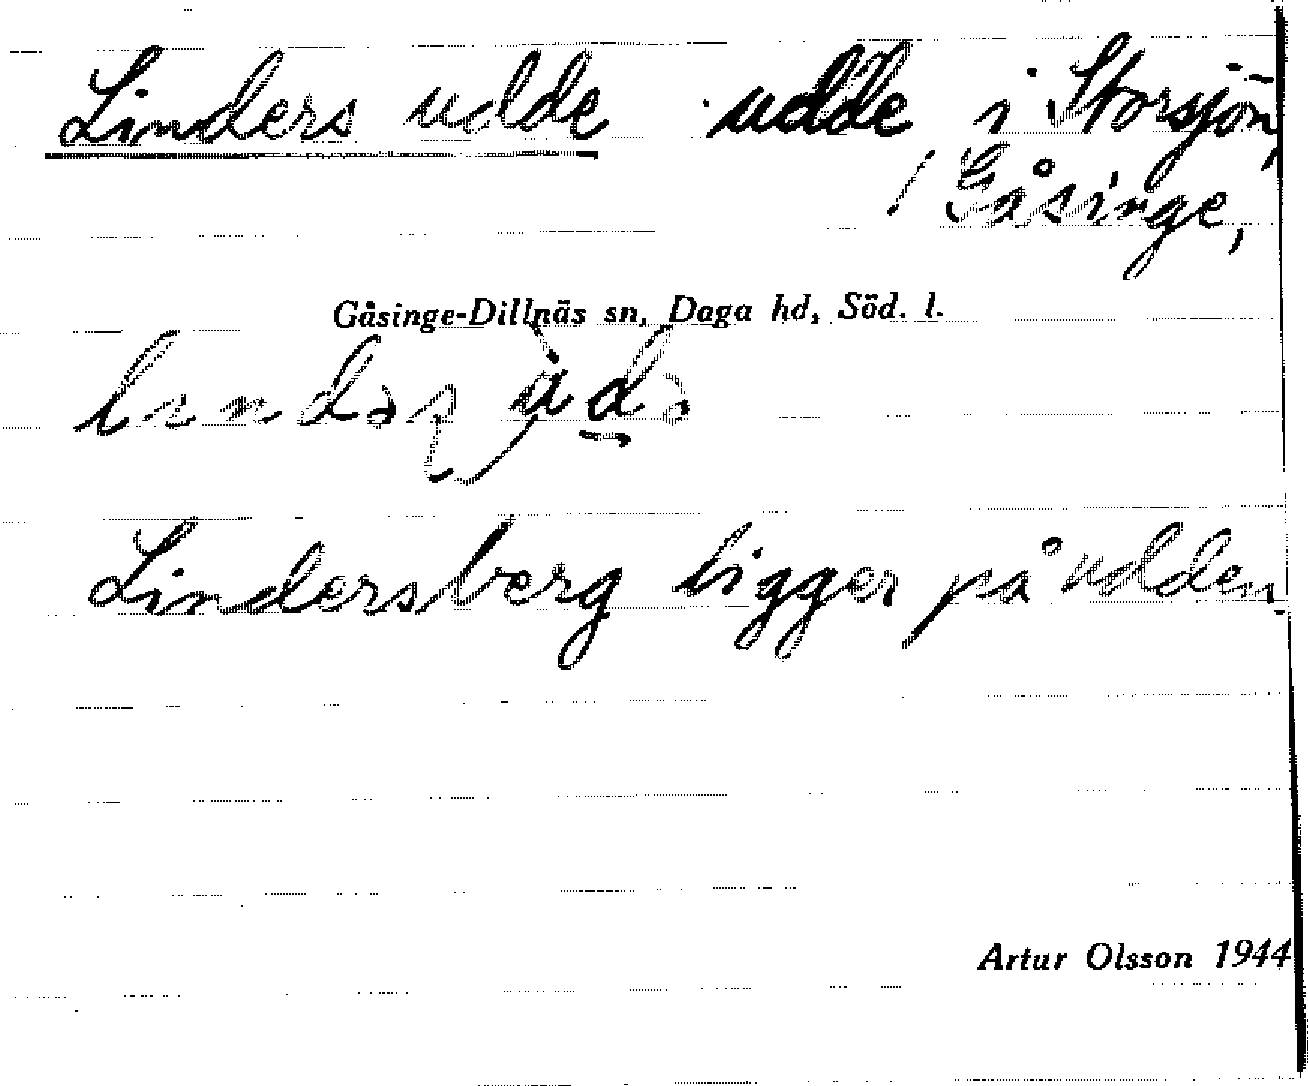 Linders udde udde i Storsjön,
/ Gåsinge,
Gåsinge-Dillnäs sn, Daga hd, Söd. l.
Lindersberg ligger på udden.
Artur Olsson 1944